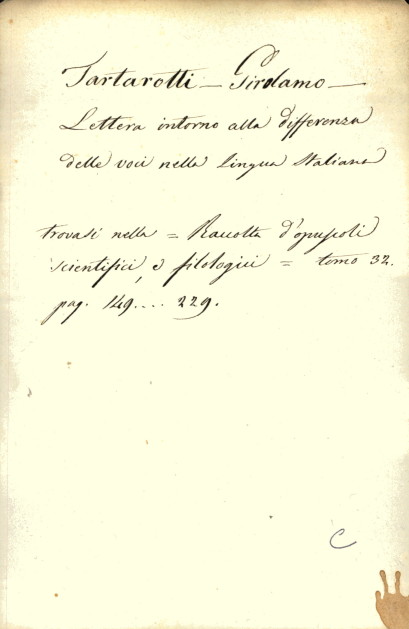 Tartarotti — Girolamo —
Lettera intorno alla differenza
delle voci nella lingua Italiana
trovasi nella = Raccolta d'opuscoli
scientifici, e filologici = tomo 32.
pag. 149.... 229.
C